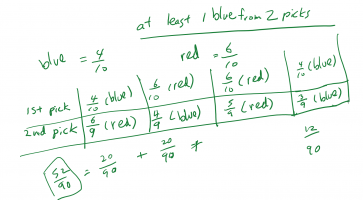 at least 1 blue from 2 picks
blue = 4/10 red = 6/10
1st pick 4/10 (blue) 6/10 (red) 6/10 (red) 4/10 (blue)
2nd pick 6/9 (red) 4/9 (blue) 5/9 (red) 3/9 (blue)
52/90 = 20/90 + 20/90 + 12/90